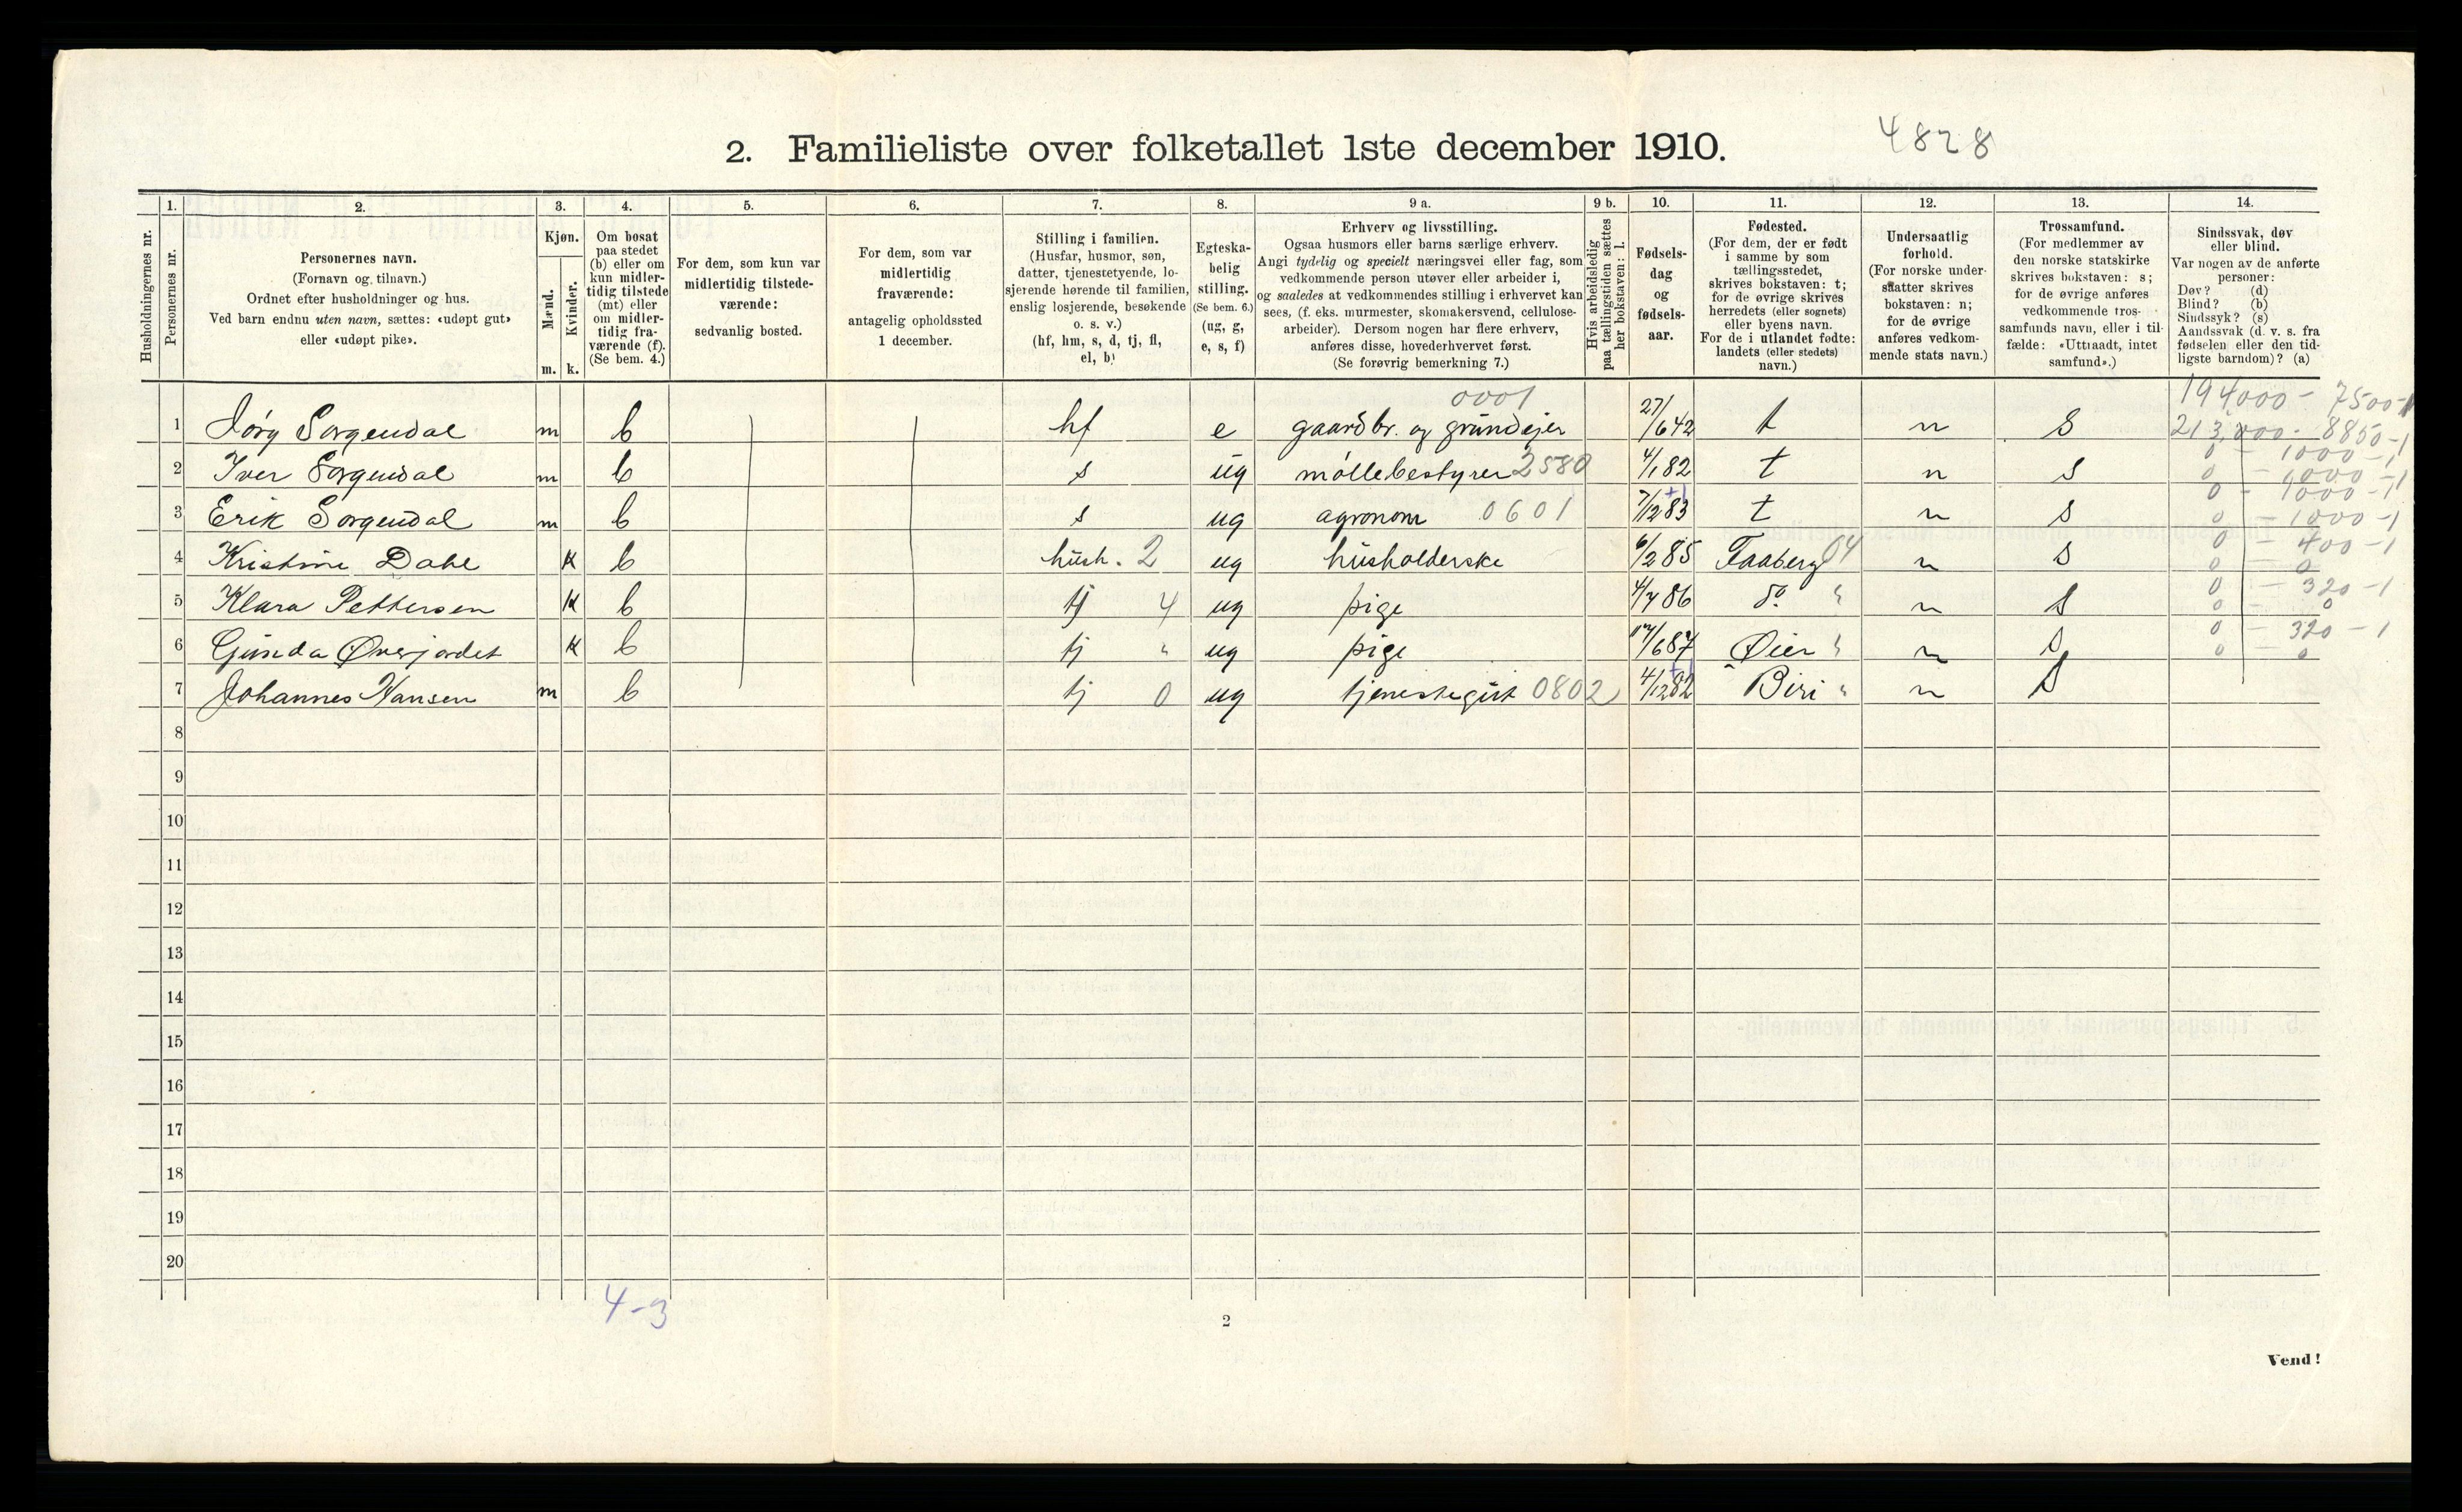 2. Familieliste over folketallet 1ste december 1910.
4828
Husholdningernes nr.
1.
Personernes nr.
2.
Personernes navn.
(Fornavn og tilnavn.)
Ordnet efter husholdninger og hus.
Ved barn endnu uten navn, sættes: «udøpt gut»
eller «udøpt pike».
3.
Kjøn.
Mænd.
Kvinder.
m. k.
4.
Om bosat
paa stedet
(b) eller om
kun midler-
tidig tilstede
(mt) eller
om midler-
tidig fra-
værende (f).
(Se bem. 4.)
5.
For dem, som kun var
midlertidig tilstede-
værende:
sedvanlig bosted.
6.
For dem, som var
midlertidig
fraværende:
antagelig opholdssted
1 december.
7.
Stilling i familien.
(Husfar, husmor, søn,
datter, tjenestetyende, lo-
sjerende hørende til familien,
enslig losjerende, besøkende
o. s. v.)
(hf, hm, s, d, tj, fl,
el, b)
8.
Egteska-
belig
stilling.
(Se bem. 6.)
(ug, g,
e, s, f)
9 a.
Erhverv og livsstilling.
Ogsaa husmors eller barns særlige erhverv.
Angi tydelig og specielt næringsvei eller fag, som
vedkommende person utøver eller arbeider i,
og saaledes at vedkommendes stilling i erhvervet kan
sees, (f. eks. murmester, skomakersvend, cellulose-
arbeider). Dersom nogen har flere erhverv,
anføres disse, hovederhvervet først.
(Se forøvrig bemerkning 7.)
9 b.
Hvis arbeidsledig
paa tællingstiden sættes
her bokstaven: l.
10.
Fødsels-
dag
og
fødsels-
aar.
11.
Fødested.
(For dem, der er født
i samme by som
tællingsstedet,
skrives bokstaven: t;
for de øvrige skrives
herredets (eller sognets)
eller byens navn.
For de i utlandet fødte:
landets (eller stedets)
navn.)
12.
Undersaatlig
forhold.
(For norske under-
saatter skrives
bokstaven: n;
for de øvrige
anføres vedkom-
mende stats navn.)
13.
Trossamfund.
(For medlemmer av
den norske statskirke
skrives bokstaven: s;
for de øvrige anføres
vedkommende tros-
samfunds navn, eller i til-
fælde: «Uttraadt, intet
samfund».)
14.
Sindssvak, døv
eller blind.
Var nogen av de anførte
personer:
Døv? (d)
Blind? (b)
Sindssyk? (s)
Aandssvak (d. v. s. fra
fødselen eller den tid-
ligste barndom)? (a)
0001 194000 - 7500-1
1 Jörg Sorgendal m b hf e gaardbr. og grundejer 27/6 42 t n s 213,000 - 8850-1
0 - 1000-1
2 Iver Sorgendal m b s ug möllebestyrer 2580 4/1 82 t n s 0 - 1000-1
0 - 1000-1
3 Erik Sorgendal m b s ug agronom 0601 7/12 83 t n s 0 - 1000-1
0 - 400-1
4 Kristine Dahl k b hush. 2 ug husholderske 6/2 85 Faaberg 04 n s 0 - 0
0 - 320-1
5 Klara Pettersen k b tj 4 ug pige 4/7 86 do " n s 0 - 0
0 - 320-1
6 Gunda Øverjordet k b tj " ug pige 17/6 87 Øier " n s 0 - 0
7 Johannes Hansen m b tj 0 ug tjenestegut 0802 4/12 82 Biri " n s
8
9
10
11
12
13
14
15
16
17
18
19
20
4-3
2
Vend!